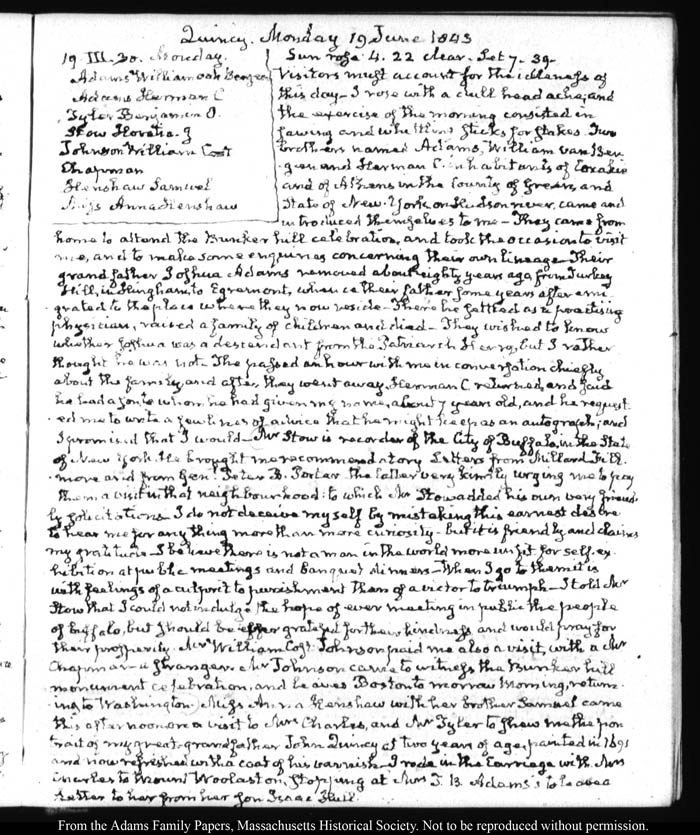 Quincy. Monday 19 June 1843
19. III. 30. Monday.
Adams William van Bergen
Adams Herman C
Tyler Benjamin O.
Stow Horatio J
Johnson William Cost
Chapman
Henshaw Samuel
Miss Anna Henshaw
Sun rose 4. 22 clear. Set 7. 39.
Visitors must account for the idleness of
this day. I rose with a dull head ache; and
the exercise of the morning consisted in
sawing and whittling sticks for stakes. Two
brothers named Adams, William van Ber-
gen and Herman C. inhabitants of Coxakie
and of Athens in the County of Green, and
State of New-York on Hudson river, came and
introduced themselves to me. They came from
home to attend the Bunker hill celebration, and took the occasion to visit
me, and to make some enquiries concerning their own lineage. Their
grandfather Joshua Adams removed about eighty years ago, from Turkey
Hill, in Hingham, to Egremont, whence their father some years after emi-
grated to the place where they now reside. There he settled as a practising
physician, raised a family of children and died. They wished to know
whether Joshua was a descendant from the Patriarch Henry, but I rather
thought he was not. The passed an hour with me in conversation chiefly
about the family, and after they went away, Herman C returned, and said
he had a son to whom he had given my name, about 7 years old, and he request-
ed me to write a few lines of advice that he might keep as an autograph; and
I promised that I would. Mr Stow is recorder of the City of Buffalo, in the State
of New York. He brought me recommendatory Letters from Millard Fill-
more and from Genl. Peter B. Porter the latter very kindly urging me to pay
them a visit in that neighbourhood: to which Mr Stow added his own very friend-
ly solicitations. I do not deceive myself by mistaking this earnest desire
to hear me for any thing more than mere curiosity. but it is friendly and claims
my gratitude. I believe there is not a man in the world more unfit for self-ex-
hibition at public meetings and banquet dinners. When I go to them it is
with feelings of a culprit to punishment than of a victor to triumph. I told Mr
Stow that I could not indulge the hope of ever meeting in public the people
of buffalo, but should be ever grateful for their kindness, and would pray for
their prosperity. Mr William Cost Johnson paid me also a visit, with a Mr
Chapman a stranger. Mr Johnson came to witness the Bunker hill
monument celebration, and leaves Boston to morrow Morning, return-
ing to Washington. Miss Anna Henshaw with her brother Samuel came
this afternoon on a visit to Mrs Charles, and Mr Tyler to shew me the por-
trait of my great-grandfather John Quincy at two years of age, painted in 1691
and now refreshed with a coat of his varnish. I rode in the Carriage with Mrs
Charles to Mount Woolaston, stopping at Mrs T. B. Adams's to leave a
Letter to her from her son Isaac Hull.
From the Adams Family Papers, Massachusetts Historical Society. Not to be reproduced without permission.